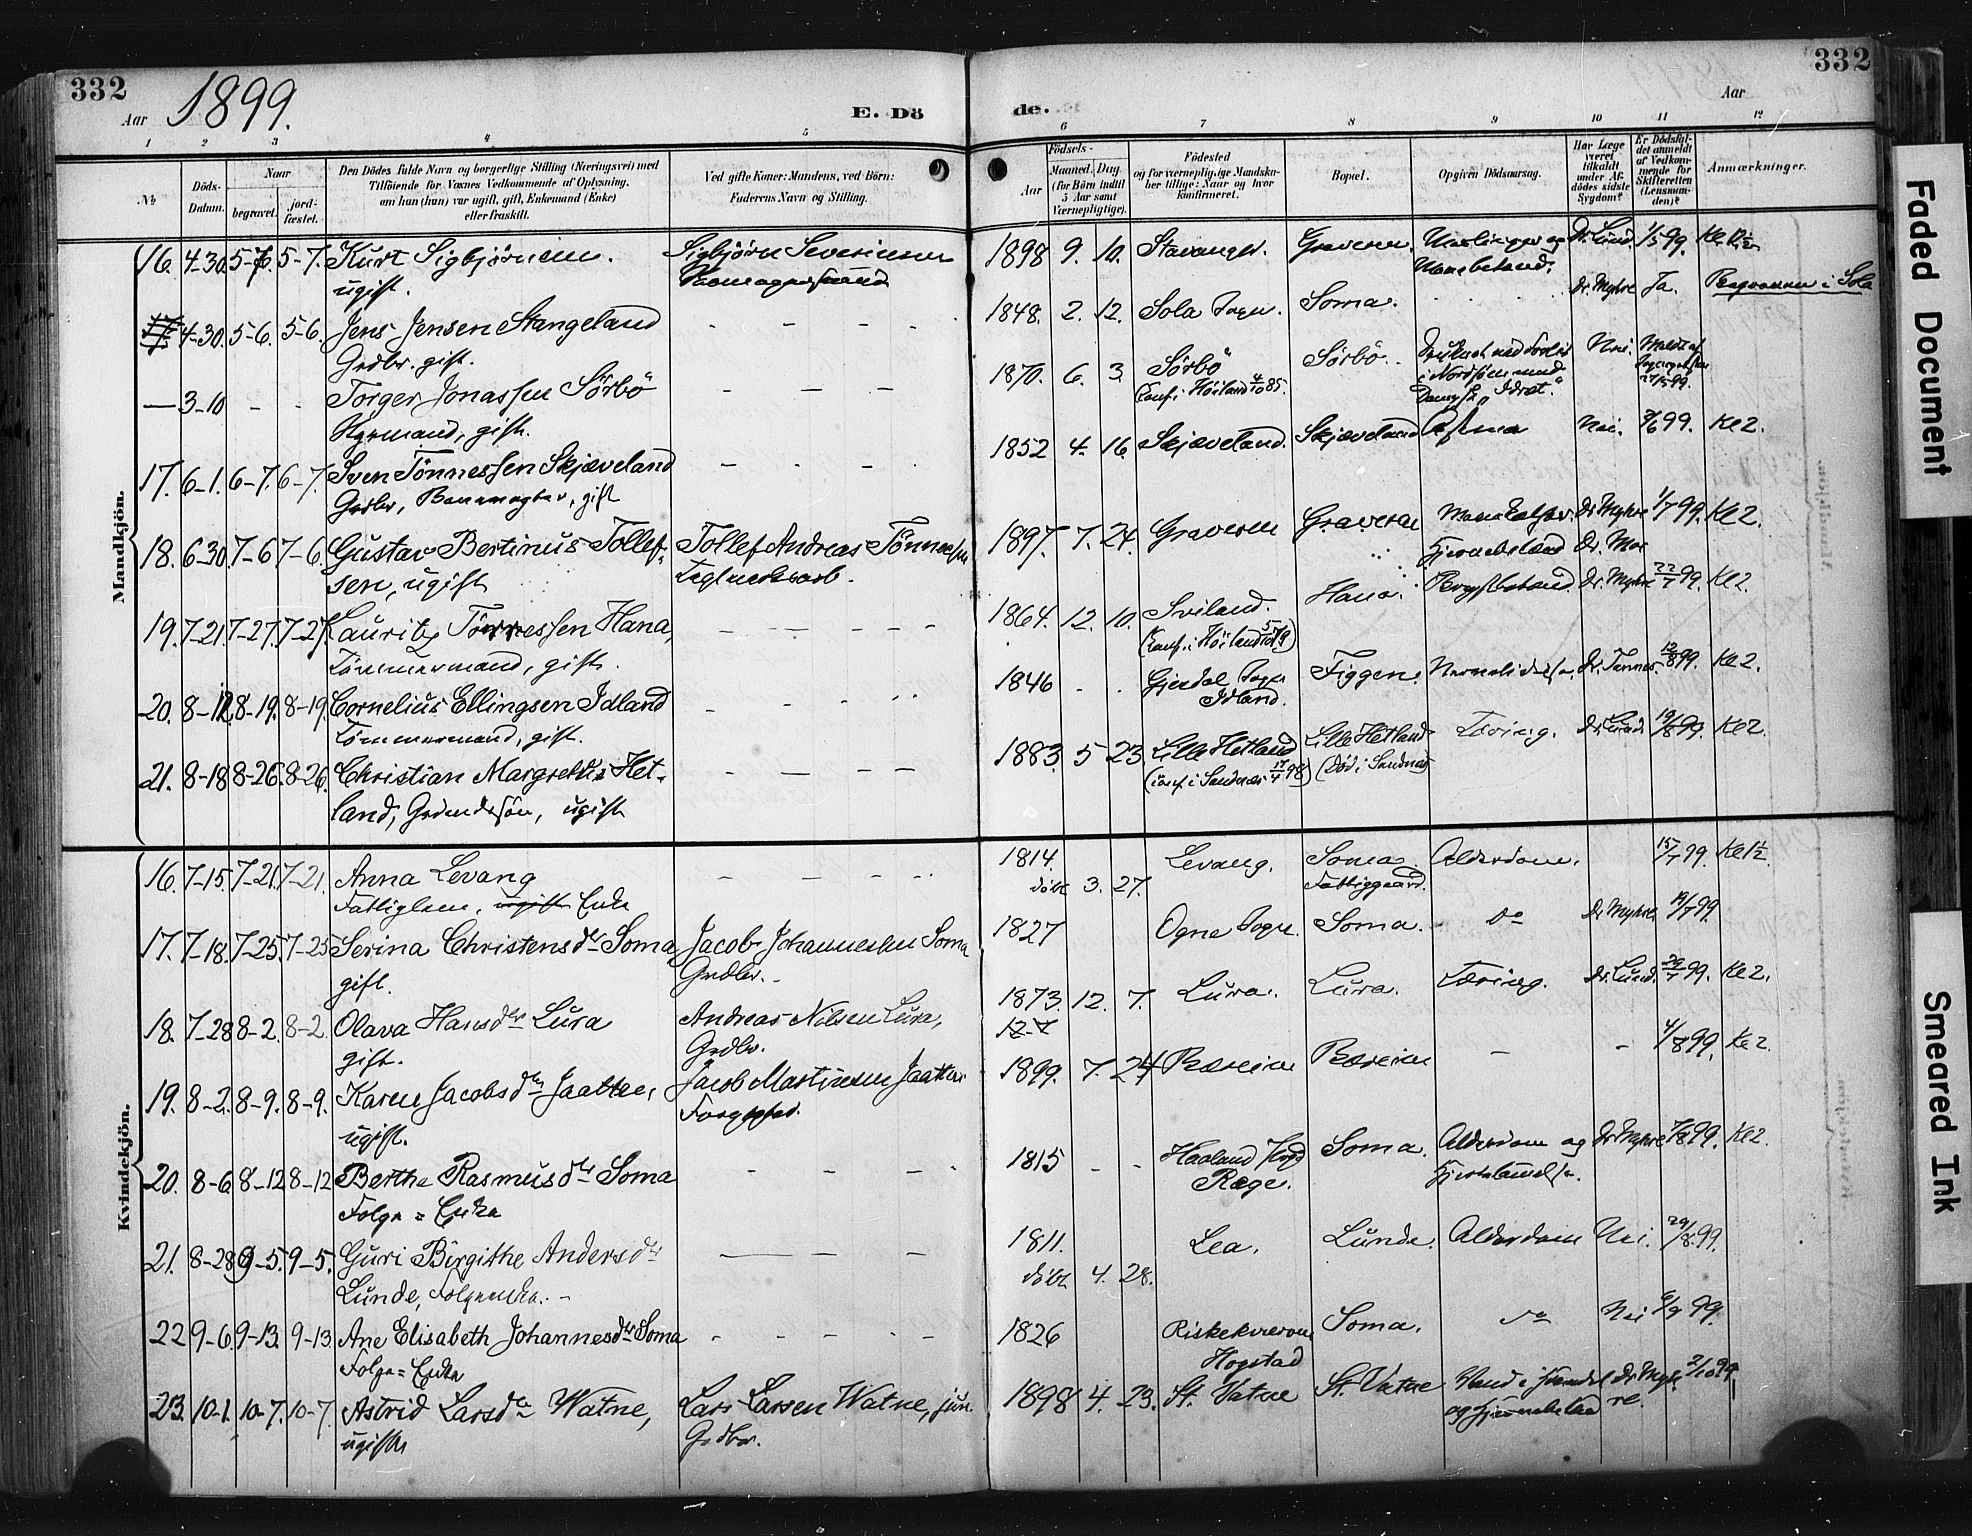 332
Aar 1899.
E. Dö
de.
Aar
332
1 2 3 4 5 6 7 8 9 10 11 12
№
Döds-Datum.
Naar
begravet.
jord-fæstet.
Den Dödes fulde Navn og borgerlige Stilling (Næringsvei) med
Tilföiende for Voxnes Vedkommende af Oplysning,
om han (hun) var ugift, gift, Enkemand (Enke)
eller fraskilt.
Ved gifte Koner: Mandens, ved Börn:
Faderens Navn og Stilling.
Födsels-
Aar
Maaned. Dag.
(for Börn indtil
5 Aar samt
Værnepligtige).
Födested
og for værnepligtige Mandska-
ber tillige: Naar og hvor
konfirmeret.
Bopæl.
Opgiven Dödsaarsag.
Har Læge
været
tilkaldt
under Af-
dödes sidste
Sygdom?
Er Dödsfal-
det anmeldt
af Vedkom-
mende for
Skifteretten
(Lensman-
den)?
Anmærkninger.
Mandkjön.
16. 4-30. 5-7. 5-7. Kurt Sigbjörnsen. Sigbjörn Severinsen 1898 9. 10. Stavanger. Graveren. Dr. Lund. 1/5 99.
ugift.
17. 4-30. 5-6. 5-6. Jens Jensen Stangeland - - - - 1848. 2. 12. Sola Sogn. Soma. Dr. Myhre Ja. Begraven i Sola
Grdbr. gift.
— 3-10 - - Torger Jonassen Sörbö - - - 1870. 6. 3. Sörbö Sörbö. Druknet ved Forlis Nei.
Styrmand, gift. Conf. i Höiland 4/10 85. i Nordsöen med
Dampsk. "Idræt."
17. 6-1. 6-7. 6-7. Sven Tönnessen Skjæveland - - - - 1852 4. 16. Skjæveland. Skjæveland Astma Nei. 2/6 99. Ke 2.
Grdbr, gift
18. 6-30. 7-6 7-6. Gustav Bertinus Tollef- Tollef Andreas Tönnessen 1897. 7. 24. Graveren Graveren Dr. Myhre 1/7 99. Ke 2.
sen, ugift Teglverksarb. Hjernebetænd
19. 7-21. 7-27. 7-27. Lauritz Tönnessen Hana, - - - - 1864. 12. 10. Sviland. Hana. Brystbetænd. Dr. Myhre 22/7 99. Ke 2.
Tömmermand, gift. (Conf. i Höiland 5/10 79)
20. 8-12. 8-19. 8-19. Cornelius Ellingsen Idland - - - - 1846 - - Gjesdal Sogn Figgen. Dr. Tannes. 12/8 99. Ke 2.
Tömmermand, gift. Idland.
21. 8-18 8-26. 8-26. Christian Margrethis Het- - - - - 1883. 5 23. Lille Hetland Lille Hetland Tæring. Dr. Lund. 19/8 99. Ke 2.
land, Grdmdssön, ugift (conf. i Sandnæs 17/4 98) (Död i Sandnæs)
Kvindekjön.
16. 7-15. 7-21. 7-21. Anna Levang - - - - 1814 Levang. Soma Alderdom. 15/7 99. Ke 1½.
Fattiglem, ugift Enke döbt 3. 27. Fattiggaard.
17. 7-18. 7-25. 7-25 Serina Christensdtr Soma, Jacob Johannessen Soma 1827 Ogne Sogn. Soma. do Dr Myhre. 19/7 99
gift. Grdbr.
18. 7-28 8-2. 8-2. Olava Hansdtr Lura Andreas Nilsen Lura, 1873. 12. 7. Lura. Lura. Tæring. Dr. Lund. 29/7 99. Ke 2.
gift. Grdbr. 12-7
19. 8-2. 8-9. 8-9. Karen Jacobsdtr Jaatten, Jacob Martinsen Jaatten 1899. 7. 24 Bæreim Bæreim - - 4/8 99. Ke 2.
ugift. Forpagter.
20. 8-6. 8-12 8-12 Berthe Rasmusdtr Soma - - - - 1815 - - Haaland Soma. Alderdom og Dr Myhre 7/8 99. Ke 2.
Folge = Enke Ræge.
21. 8-28 9-5. 9-5. Guri Birgithe Andersdtr — - - - 1811. Lea. Lunde. Alderdom Nei. 29/8 99.
Lunde, Folgeenke. - döbt 4. 28.
22 9-6. 9-13. 9-13 Ane Elisabeth Johannesdtr Soma - - - - 1826 Soma. do Nei 6/9 99.
Folge = Enke Hogstad
23. 10-1. 10-7. 10-7. Astrid Larsdtr Watne, Lars Larsen Watne, jun. 1898 4. 23. St. Vatne St. Vatne Vand i Hovedet Dr. Myh- 2/10 99.
ugift Grdbr. og Hjernebetænd re.
Mandkjön.
Kvindekjön.
Faded Document
Smeared Ink